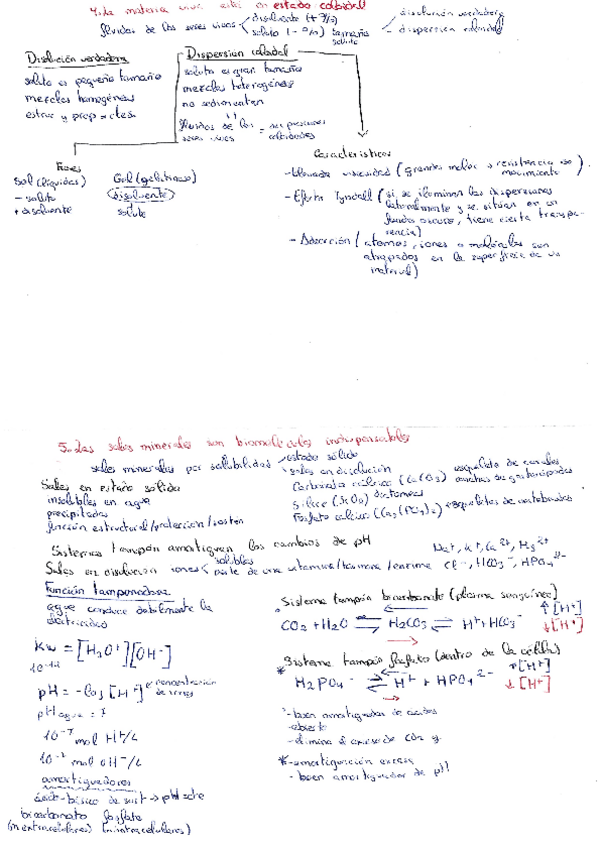 4. La materia viva está en estado coloidal
fluidos de los seres vivos
disolvente (+ %)
soluto (- %) tamaño soluto
disolución verdadera
- dispersión coloidal
Disolución verdadera
soluto es pequeño tamaño
mezclas homogéneas
estru y prop = ctes.
Dispersión coloidal
soluto es gran tamaño
mezclas heterogéneas
no sedimentan
fluidos de los seres vivos = coloidales
Fases
Sol (líquidas)
- soluto
+ disolvente
Gel (gelatinoso)
disolvente
soluto
Características
- Elevada viscosidad (grandes moléc → resistencia movimiento)
- Efecto Tyndall (si se iluminan las dispersiones
lateralmente y se sitúan en un
fondo oscuro, tiene cierta transpa-
rencia)
- Adsorción (atomos, iones o moléculas son
atrapados en la superficie de un
material)
5. Las sales minerales son biomoléculas indispensables
sales minerales por solubilidad
estado sólido
sales en disolución
Sales en estado sólido
insolubles en agua
precipitadas
función estructural/protección/sosten
Carbonato cálcico (CaCO3) esqueleto de corales
conchas de gasterópodos
Sílice (SiO2) diatomeas
Fosfato cálcico (Ca3(PO4)2) esqueletos de vertebrados
Sistemas tampón amortiguan los cambios de pH
Sales en disolución iones
solubles
parte de una vitamina/hormona/enzima
Na+, K+, Ca2+, Mg2+
Cl-, HCO3-, HPO4 2-
Función tamponadora
agua conduce debilmente la
electricidad
Kw = [H3O+][OH-]
10-14
pH = -log [H+] concentración
de iones
pH agua = 7
10-7 mol H+/L
10-7 mol OH-/L
amortiguadores
ácido-básico de → pH = cte
bicarbonato fosfato
(m extracelulares) (m intracelulares)
Sistema tampón bicarbonato (plasma sanguíneo)
CO2 + H2O ⇌ H2CO3 ⇌ H+ + HCO3-
↑[H+]
↓[H+]
* Sistema tampón fosfato (dentro de la célula)
H2PO4- ⇌ H+ + HPO4 2-
↑[H+]
↓[H+]
- buen amortiguador de ácidos
- abierto
- elimina el exceso de CO2 g.
* - amortiguación escasa
- buen amortiguador de pH